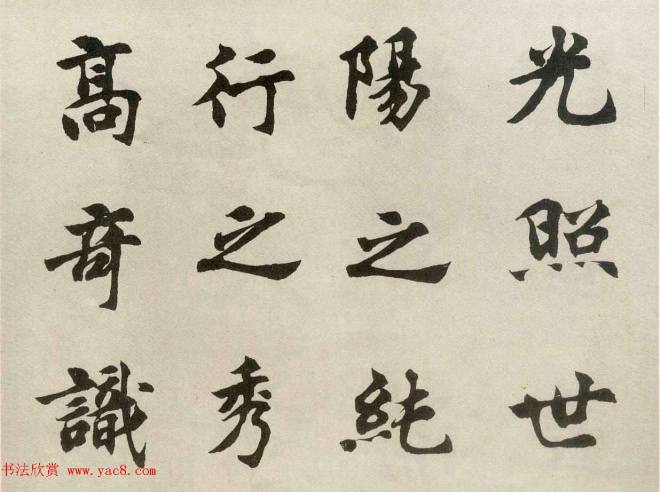 光照世
陽之純
行之秀
髙竒識
书法欣赏 www.yac8.com